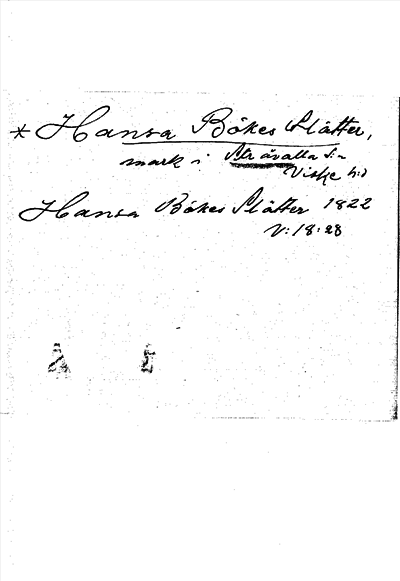 * Hansa Bökes Slätter,
mark i Stråvalla s:n
Viske h:d
Hansa Bökes Slätter 1822
V: 18: 28
A E